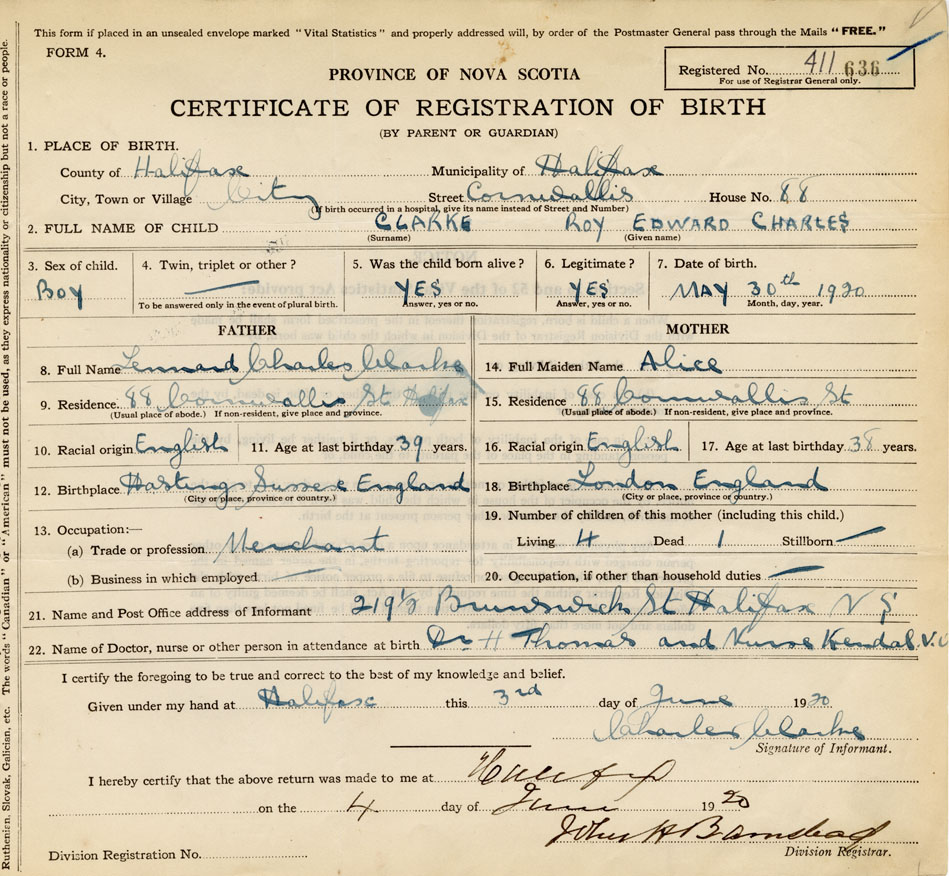 This form if placed in an unsealed envelope marked "Vital Statistics" and properly addressed will, by order of the Postmaster General pass through the Mails "FREE."
FORM 4.
Registered No. 411 636
For use of Registrar General only.
PROVINCE OF NOVA SCOTIA
CERTIFICATE OF REGISTRATION OF BIRTH
(BY PARENT OR GUARDIAN)
1. PLACE OF BIRTH.
County of Halifax Municipality of Halifax
City, Town or Village City Street Cornwallis House No. 88
(If birth occurred in a hospital, give its name instead of Street and Number)
2. FULL NAME OF CHILD CLARKE ROY EDWARD CHARLES
(Surname) (Given name)
3. Sex of child. 4. Twin, triplet or other? 5. Was the child born alive? 6. Legitimate? 7. Date of birth.
BOY YES YES MAY 30th 1920
To be answered only in the event of plural birth. Answer, yes or no. Answer, yes or no. Month, day, year.
FATHER MOTHER
8. Full Name Lennard Charles Clarke 14. Full Maiden Name Alice
9. Residence 88 Cornwallis St Halifax 15. Residence 88 Cornwallis St
(Usual place of abode.) If non-resident, give place and province. (Usual place of abode.) If non-resident, give place and province.
10. Racial origin English 11. Age at last birthday 39 years. 16. Racial origin English 17. Age at last birthday 38 years.
12. Birthplace Hastings Sussex England 18. Birthplace London England
(City or place, province or country.) (City or place, province or country.)
13. Occupation:— 19. Number of children of this mother (including this child.)
(a) Trade or profession Merchant Living 4 Dead 1 Stillborn
(b) Business in which employed 20. Occupation, if other than household duties
21. Name and Post Office address of Informant 219½ Brunswick St Halifax N S
22. Name of Doctor, nurse or other person in attendance at birth Dr H Thomas and Nurse Kendal
I certify the foregoing to be true and correct to the best of my knowledge and belief.
Given under my hand at Halifax this 3rd day of June 1920
Charles Clarke
Signature of Informant.
I hereby certify that the above return was made to me at Halifax
on the 4 day of June 1920
John H Barnstead
Division Registrar.
Division Registration No.
Ruthenian, Slovak, Galician, etc. The words "Canadian" or "American" must not be used, as they express nationality or citizenship but not a race or people.